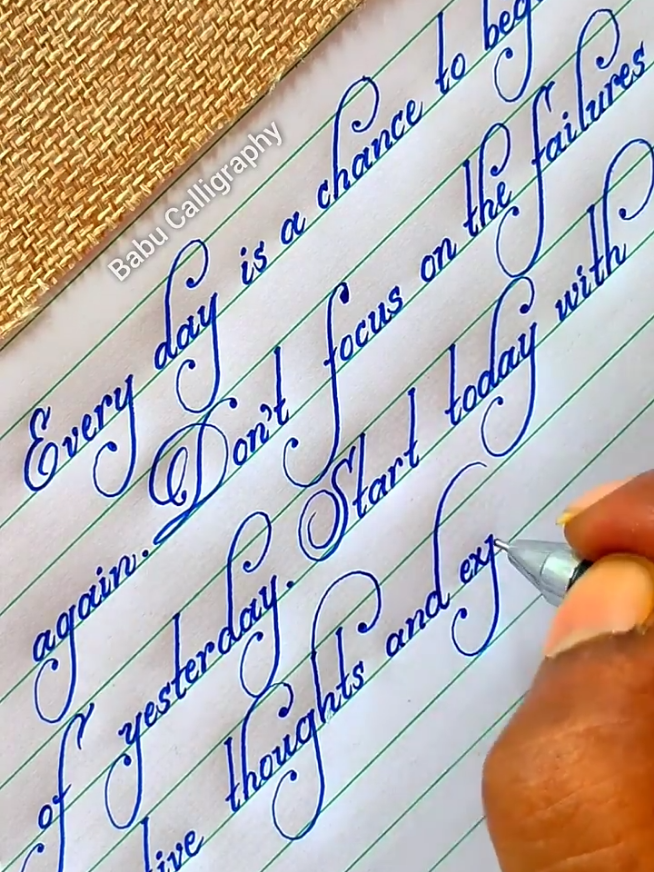 Babu Calligraphy
Every day is a chance to beg
again. Don't focus on the failures
of yesterday. Start today with
tive thoughts and exp